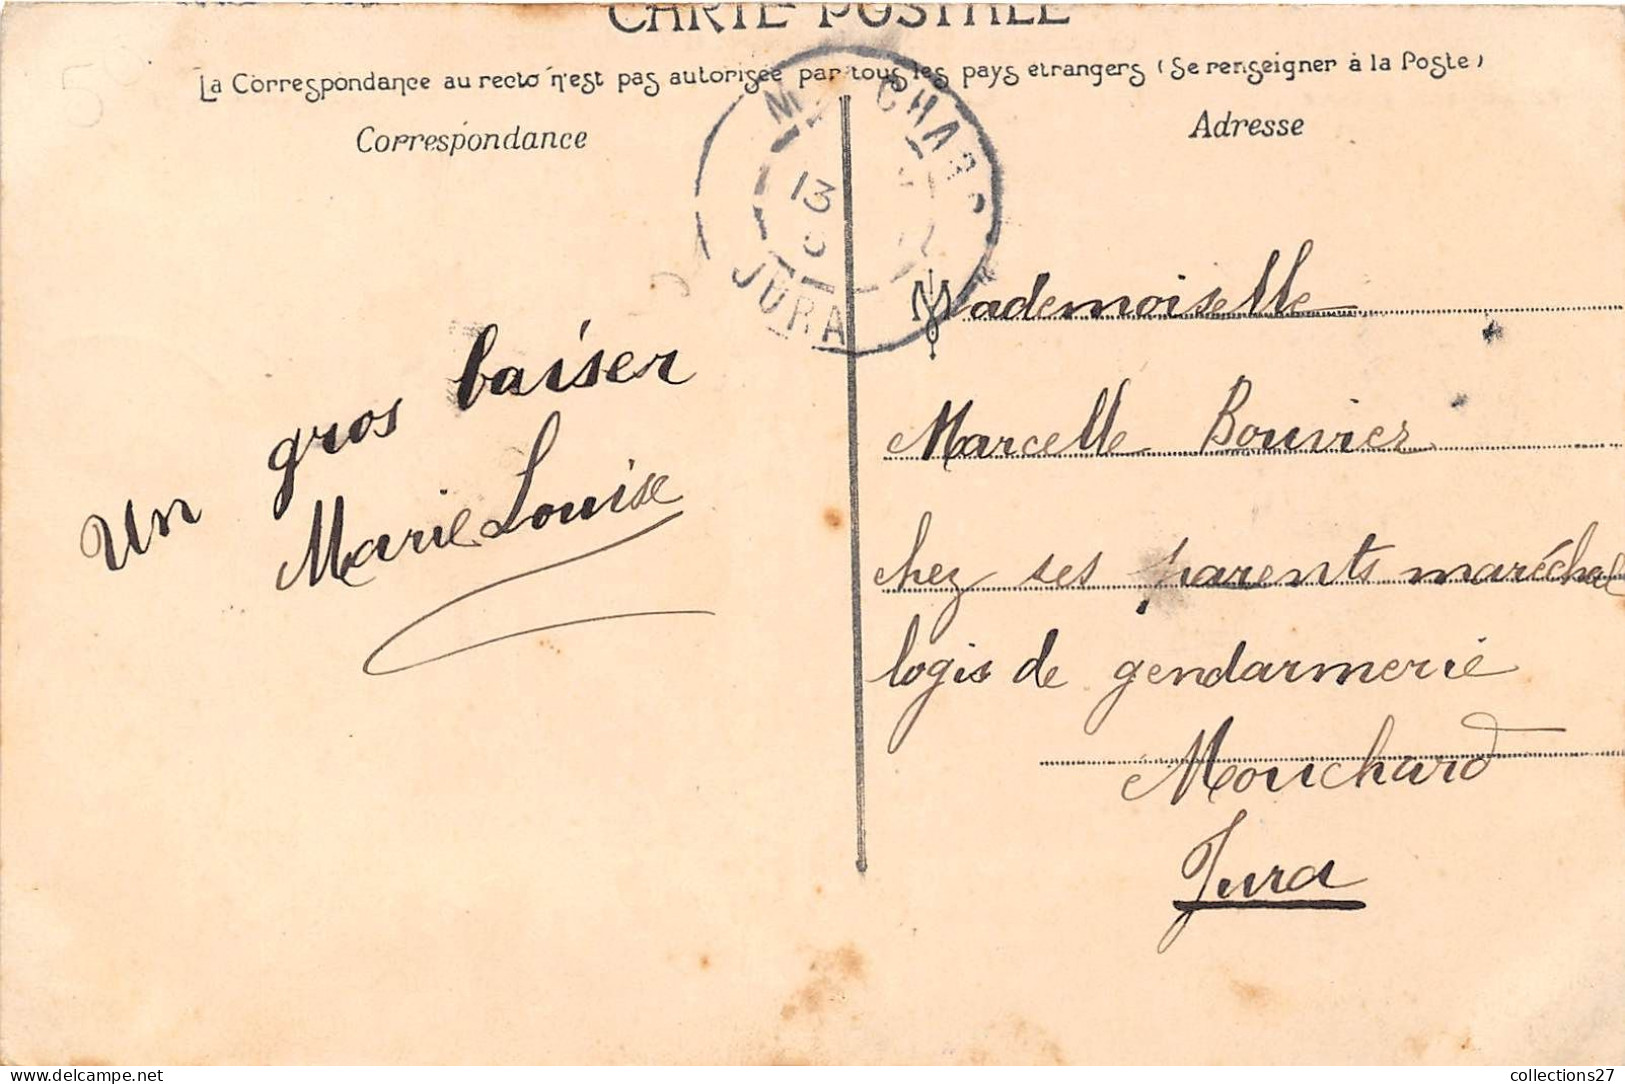 CARTE POSTALE
La Correspondance au recto n'est pas autorisée par tous les pays etrangers (Se renseigner à la Poste)
Correspondance
Adresse
13
JURA
Un gros baiser
Marie Louise
Mademoiselle
Marcelle Bouvier
chez ses parents maréchal
logis de gendarmerie
Mouchard
Jura
collections27